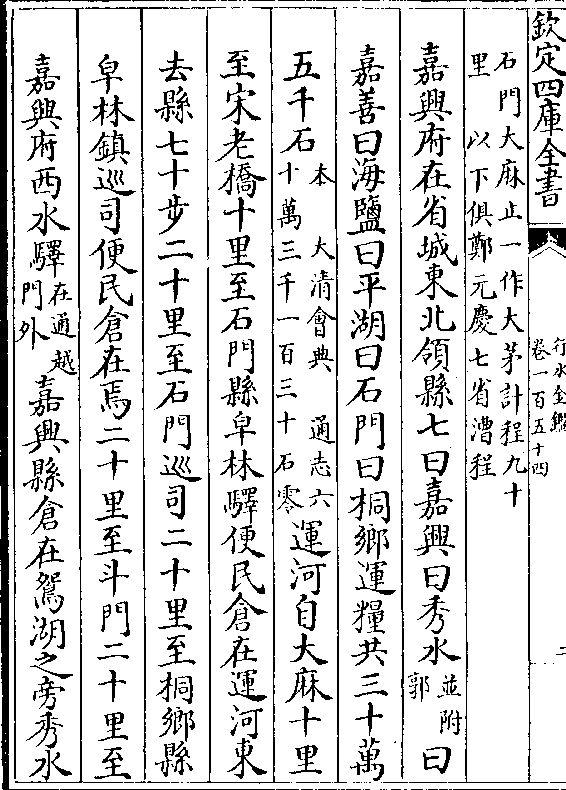 欽定四庫全書
行水金鑑
卷一百五十四
二
石門大麻止一作大茅計程九十
里 以下俱鄭元慶七省漕程
嘉興府在省城東北領縣七曰嘉興曰秀水並附郭曰
嘉善曰海鹽曰平湖曰石門曰桐鄉運糧共三十萬
五千石本 大清會典 通志六十萬三千一百三十石零運河自大麻十里
至宋老橋十里至石門縣皁林驛便民倉在運河東
去縣七十步二十里至石門巡司二十里至桐鄉縣
皁林鎮巡司便民倉在焉二十里至斗門二十里至
嘉興府西水驛在通越門外嘉興縣倉在鴛湖之旁秀水